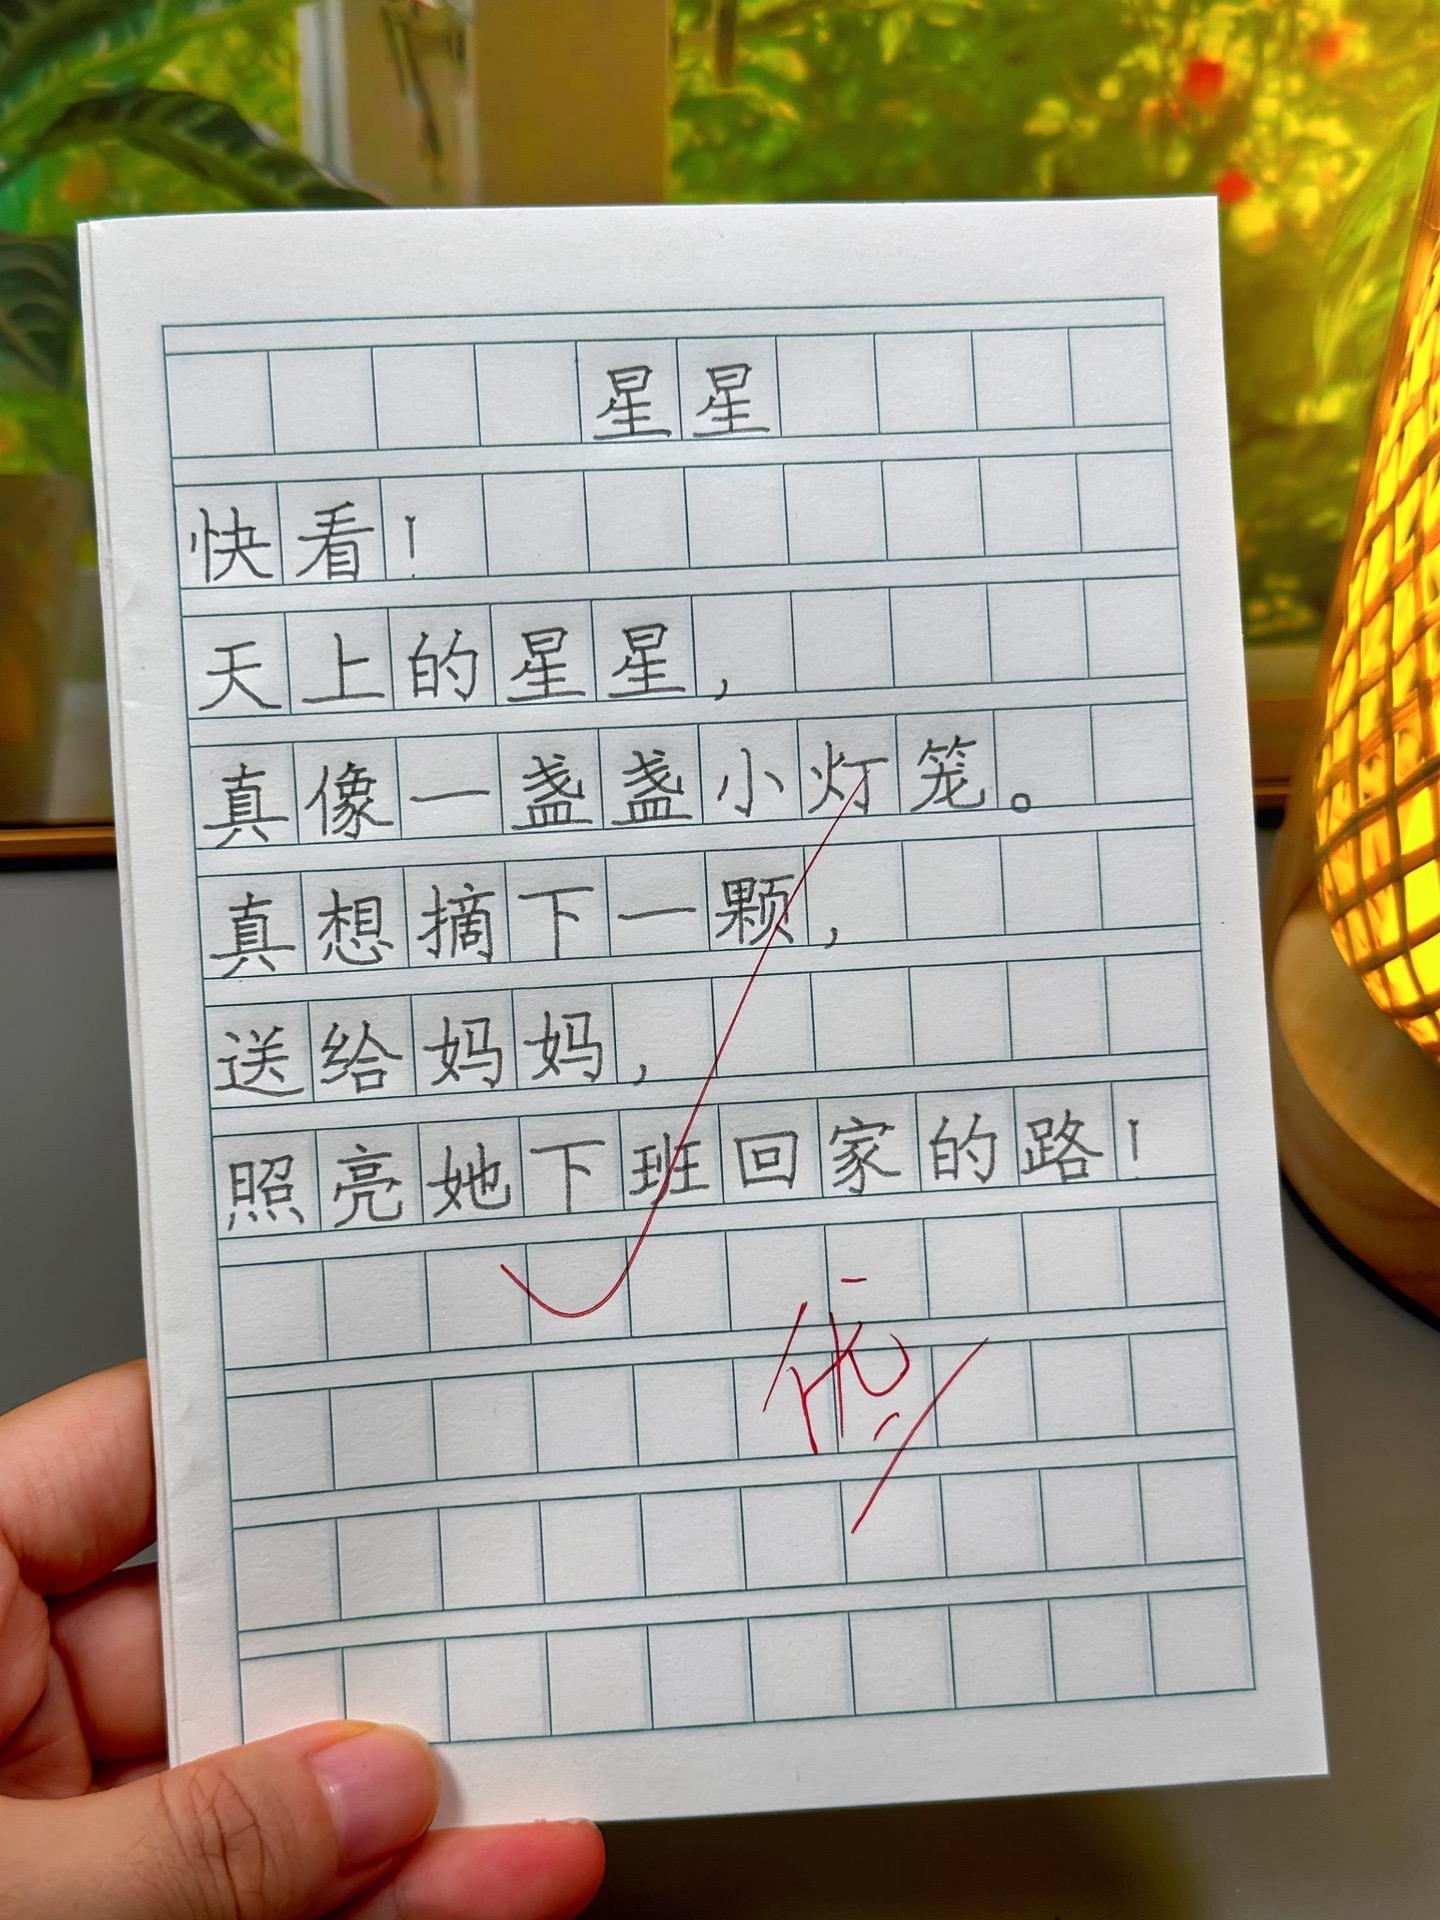 星星
快看！
天上的星星，
真像一盏盏小灯笼。
真想摘下一颗，
送给妈妈，
照亮她下班回家的路！
优